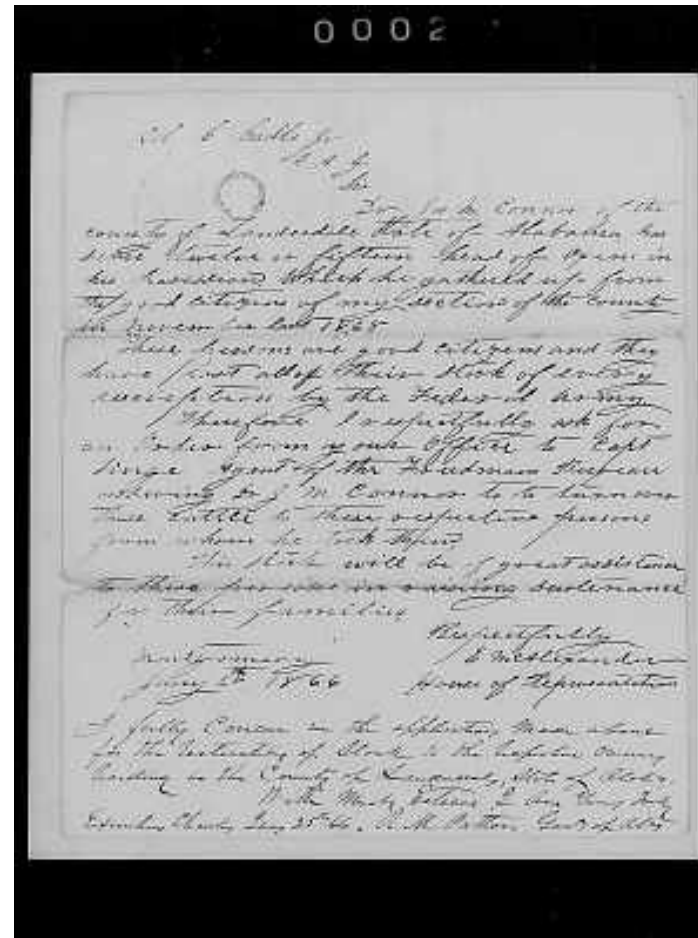 0002
Col C Cadle Jr
A A G
Sir
Dr J M Connor of the
county of Lauderdale State of Alabama has
some twelve or fifteen head of oxen in
his possession which he gathered up from
the good citizens of my section of the county
in November last 1865
These persons are good citizens and they
have lost all of their stock of every
description by the Federal army
Therefore I respectfully ask for
an order from your office to Capt
agent of the Freedmans Bureau
ordering Dr J. M. Connor to to turn over
these cattle to these respective persons
from whom he took them
This stock will be of great assistance
to these persons in raising sustenance
for their families
Respectfully
Montgomery E M Alexander
Jany 1866 House of Representatives
I fully Concur in the application made above
for the restoring of Stock to the owners
in the County of State of Alaba.
With Much Esteem I Am
R. M. Patton Govr of Ala